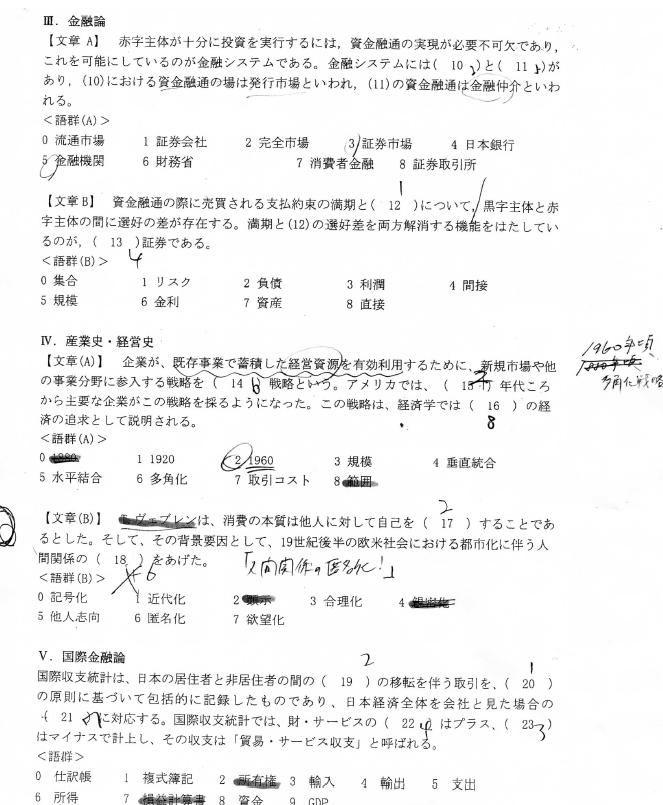 Ⅲ．金融論
【文章 A】　赤字主体が十分に投資を実行するには，資金融通の実現が必要不可欠であり，
これを可能にしているのが金融システムである。金融システムには（ 10 ）と（ 11 ）が
あり，(10)における資金融通の場は発行市場といわれ，(11)の資金融通は金融仲介といわ
れる。
＜語群(A)＞
0 流通市場　1 証券会社　2 完全市場　3 証券市場　4 日本銀行
5 金融機関　6 財務省　7 消費者金融　8 証券取引所
1
【文章 B】　資金融通の際に売買される支払約束の満期と（ 12 ）について，黒字主体と赤
字主体の間に選好の差が存在する。満期と(12)の選好差を両方解消する機能をはたしてい
るのが，（ 13 ）証券である。
4
＜語群(B)＞
0 集合　1 リスク　2 負債　3 利潤　4 間接
5 規模　6 金利　7 資産　8 直接
Ⅳ．産業史・経営史
【文章(A)】　企業が、既存事業で蓄積した経営資源を有効利用するために、新規市場や他
の事業分野に参入する戦略を（ 14 ）戦略という。アメリカでは、（ 15 ）年代ころ
から主要な企業がこの戦略を採るようになった。この戦略は、経済学では（ 16 ）の経
済の追求として説明される。
6
2
8
1960年頃
多角化戦略
＜語群(A)＞
0 1880　1 1920　2 1960　3 規模　4 垂直統合
5 水平結合　6 多角化　7 取引コスト　8 範囲
2
【文章(B)】　ヴェブレンは、消費の本質は他人に対して自己を（ 17 ）することであ
るとした。そして、その背景要因として、19世紀後半の欧米社会における都市化に伴う人
間関係の（ 18 ）をあげた。
6
「人間関係の匿名化！」
＜語群(B)＞
0 記号化　1 近代化　2 顕示　3 合理化　4 親密化
5 他人志向　6 匿名化　7 欲望化
Ⅴ．国際金融論
2
1
国際収支統計は、日本の居住者と非居住者の間の（ 19 ）の移転を伴う取引を、（ 20 ）
の原則に基づいて包括的に記録したものであり、日本経済全体を会社と見た場合の
（ 21 ）に対応する。国際収支統計では、財・サービスの（ 22 ）はプラス、（ 23 ）
4
3
はマイナスで計上し、その収支は「貿易・サービス収支」と呼ばれる。
＜語群＞
0 仕訳帳　1 複式簿記　2 所有権　3 輸入　4 輸出　5 支出
6 所得　7 損益計算書　8 資金　9 GDP